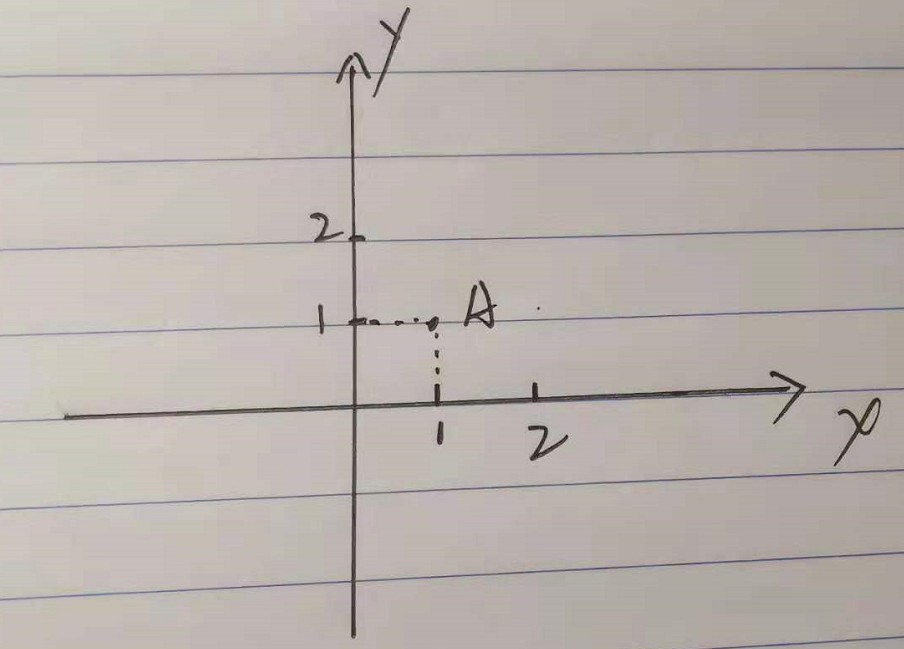 y
2
1 A
1 2
x